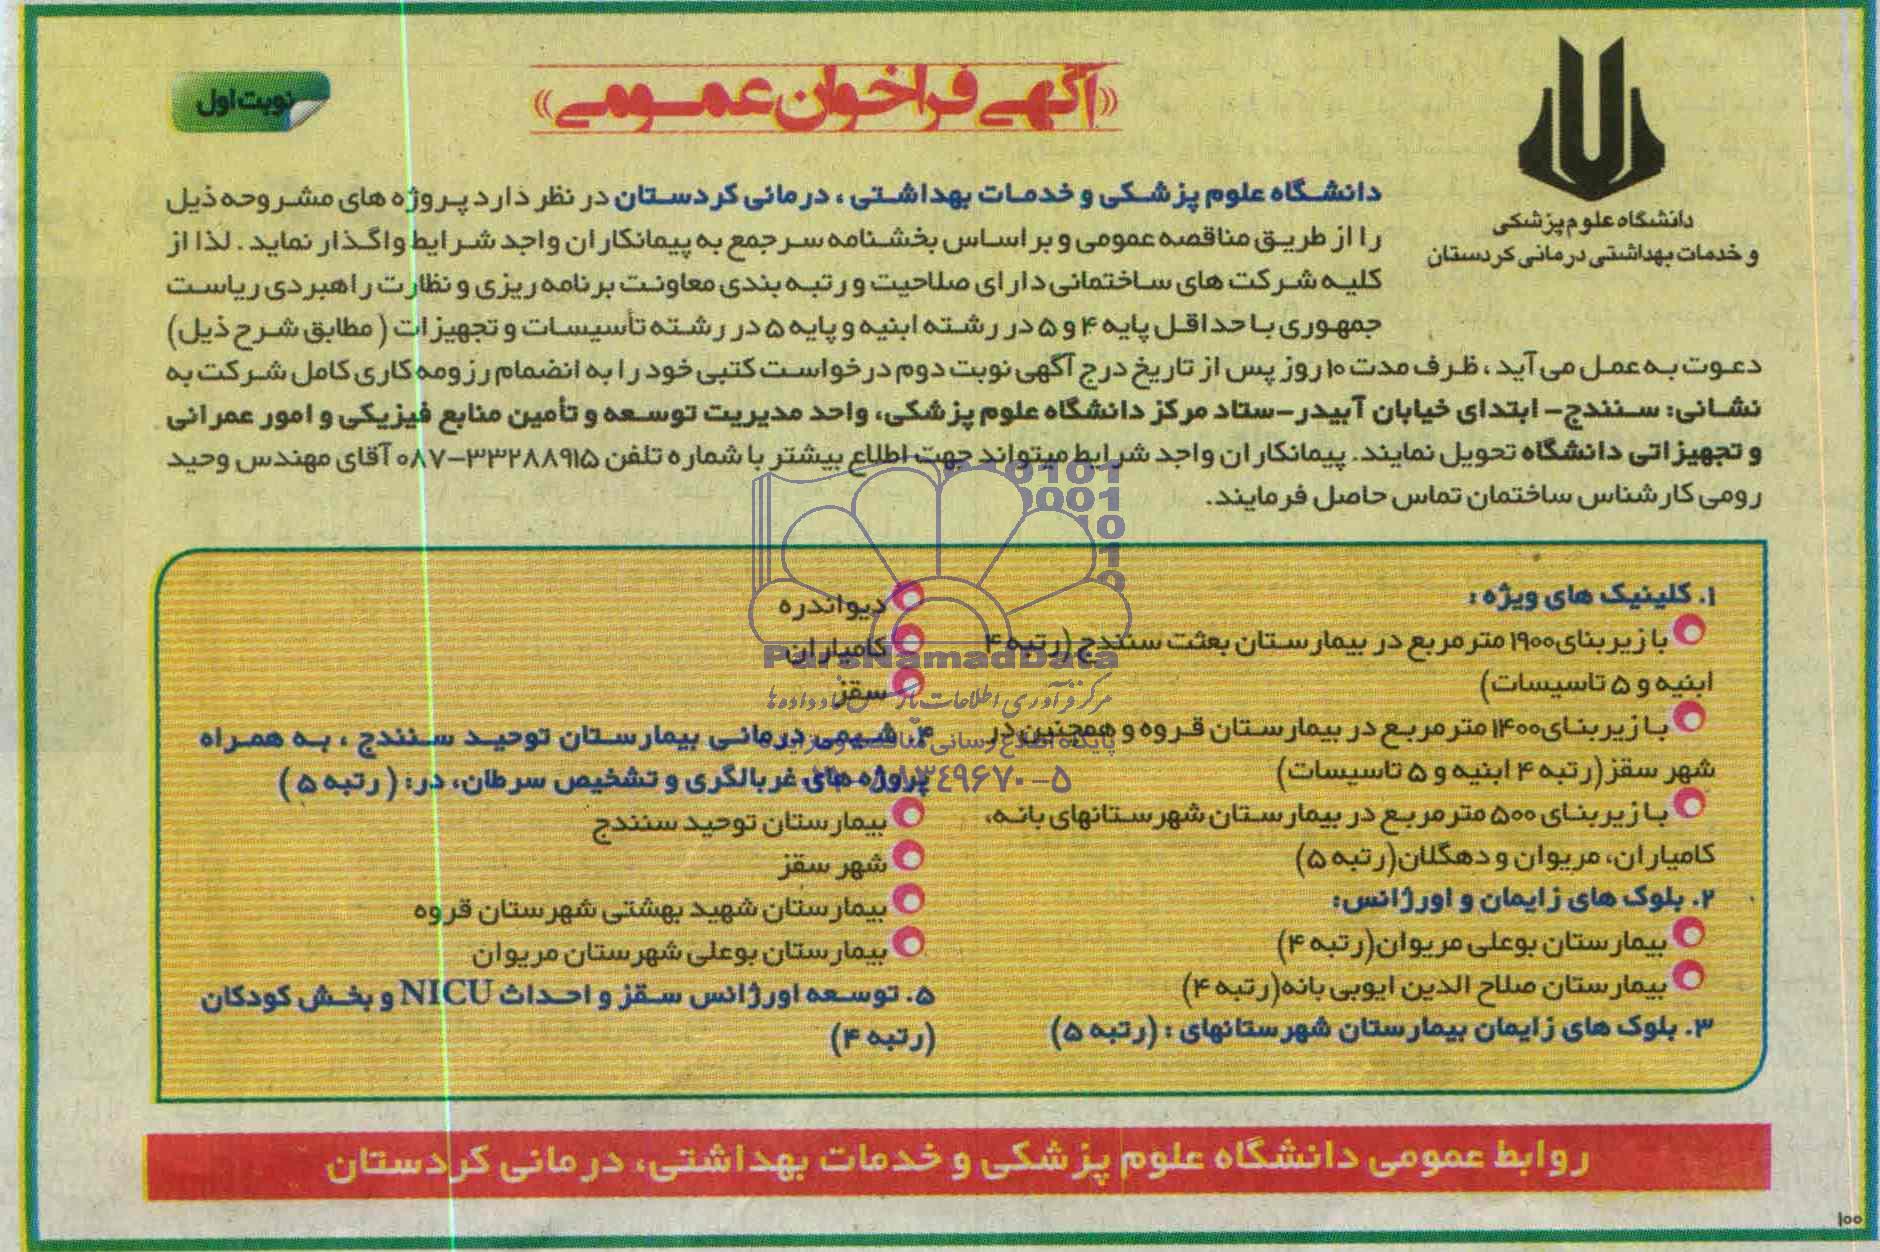 «آگهی فراخوان عمومی»
نوبت اول
دانشگاه علوم پزشکی
و خدمات بهداشتی درمانی کردستان
دانشگاه علوم پزشکی و خدمات بهداشتی ، درمانی کردستان در نظر دارد پروژه های مشروحه ذیل
را از طریق مناقصه عمومی و بر اساس بخشنامه سرجمع به پیمانکاران واجد شرایط واگذار نماید . لذا از
کلیه شرکت های ساختمانی دارای صلاحیت و رتبه بندی معاونت برنامه ریزی و نظارت راهبردی ریاست
جمهوری با حداقل پایه ۴ و ۵ در رشته ابنیه و پایه ۵ در رشته تأسیسات و تجهیزات ( مطابق شرح ذیل)
دعوت به عمل می آید ، ظرف مدت ۱۰ روز پس از تاریخ درج آگهی نوبت دوم درخواست کتبی خود را به انضمام رزومه کاری کامل شرکت به
نشانی: سنندج- ابتدای خیابان آبیدر-ستاد مرکز دانشگاه علوم پزشکی، واحد مدیریت توسعه و تأمین منابع فیزیکی و امور عمرانی
و تجهیزاتی دانشگاه تحویل نمایند. پیمانکاران واجد شرایط میتواند جهت اطلاع بیشتر با شماره تلفن ۳۳۲۸۸۹۱۵-۰۸۷ آقای مهندس وحید
رومی کارشناس ساختمان تماس حاصل فرمایند.
۱. کلینیک های ویژه :
با زیربنای۱۹۰۰ مترمربع در بیمارستان بعثت سنندج (رتبه ۴
ابنیه و ۵ تاسیسات)
با زیربنای۱۴۰۰ مترمربع در بیمارستان قروه و همچنین در
شهر سقز(رتبه ۴ ابنیه و ۵ تاسیسات)
با زیربنای ۵۰۰ مترمربع در بیمارستان شهرستانهای بانه،
کامیاران، مریوان و دهگلان(رتبه ۵)
۲. بلوک های زایمان و اورژانس:
بیمارستان بوعلی مریوان(رتبه ۴)
بیمارستان صلاح الدین ایوبی بانه(رتبه ۴)
۳. بلوک های زایمان بیمارستان شهرستانهای : (رتبه ۵)
دیواندره
کامیاران
سقز
۴. شیمی درمانی بیمارستان توحید سنندج ، به همراه
پروژه های غربالگری و تشخیص سرطان، در: ( رتبه ۵ )
بیمارستان توحید سنندج
شهر سقز
بیمارستان شهید بهشتی شهرستان قروه
بیمارستان بوعلی شهرستان مریوان
۵. توسعه اورژانس سقز و احداث NICU و بخش کودکان
(رتبه ۴)
ParsNamadData
مرکز فرآوری اطلاعات پارس نماد داده ها
پایگاه اطلاع رسانی
روابط عمومی دانشگاه علوم پزشکی و خدمات بهداشتی، درمانی کردستان
۱۰۰